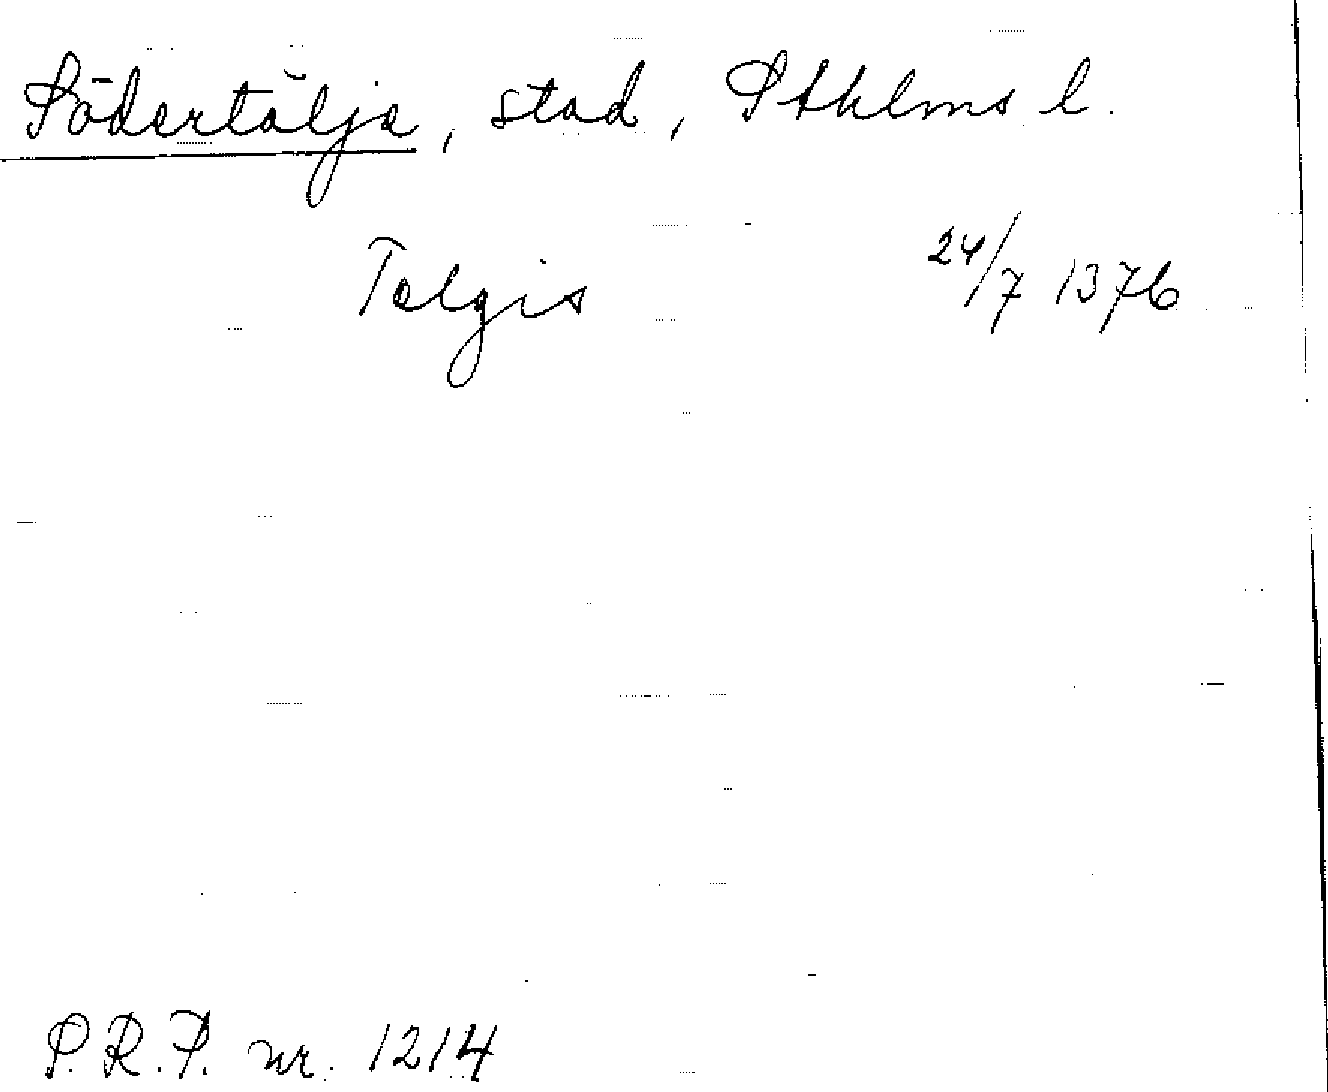 Södertälje, stad, Sthlms l.
Telgis 24/7 1376
P.R.P. nr. 1214